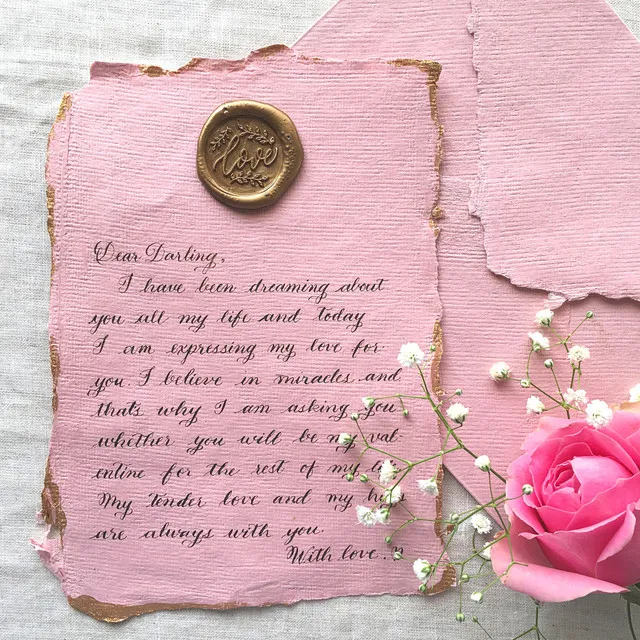 love
Dear Darling,
I have been dreaming about
you all my life and today
I am expressing my love for
you. I believe in miracles and
that's why I am asking you
whether you will be my val-
entine for the rest of my
My tender love and my
are always with you.
With love.